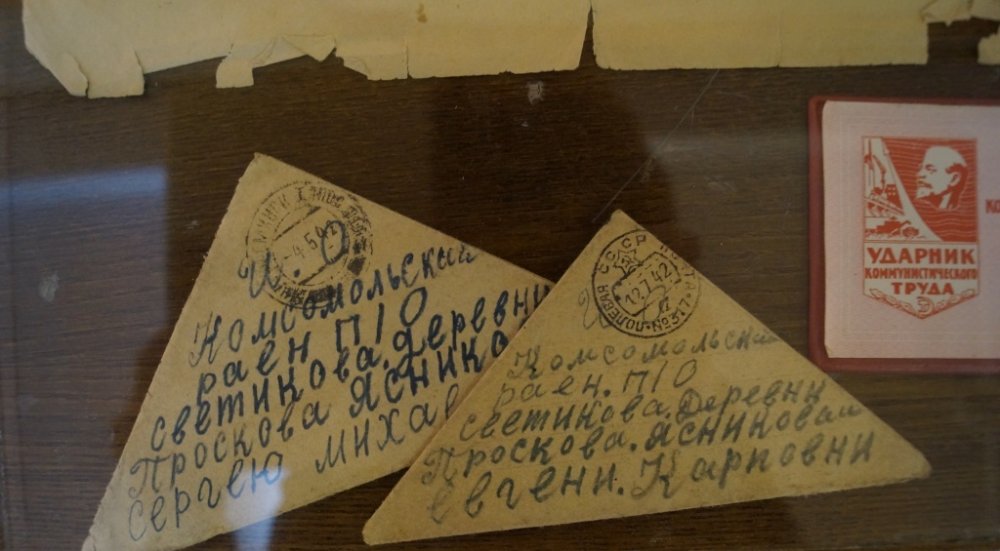 4.5.42
И О
Комсомольский
раен П/О
светикова. деревни
Проскова Ясник
сергею миха
СССР
ПОЛЕВАЯ ПОЧТА
12.7.42
Комсомольский
раен. П/О
светикова. деревни
Проскова. Ясниковай
евгени. Карповни
УДАРНИК
КОММУНИСТИЧЕСКОГО
ТРУДА